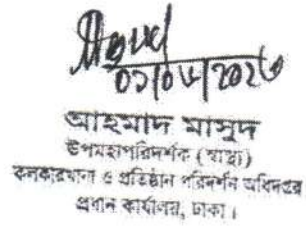 আহমাদ মাসুদ
উপমহাপরিদর্শক (স্বাস্থ্য)
কলকারখানা ও প্রতিষ্ঠান পরিদর্শন অধিদপ্তর
প্রধান কার্যালয়, ঢাকা।